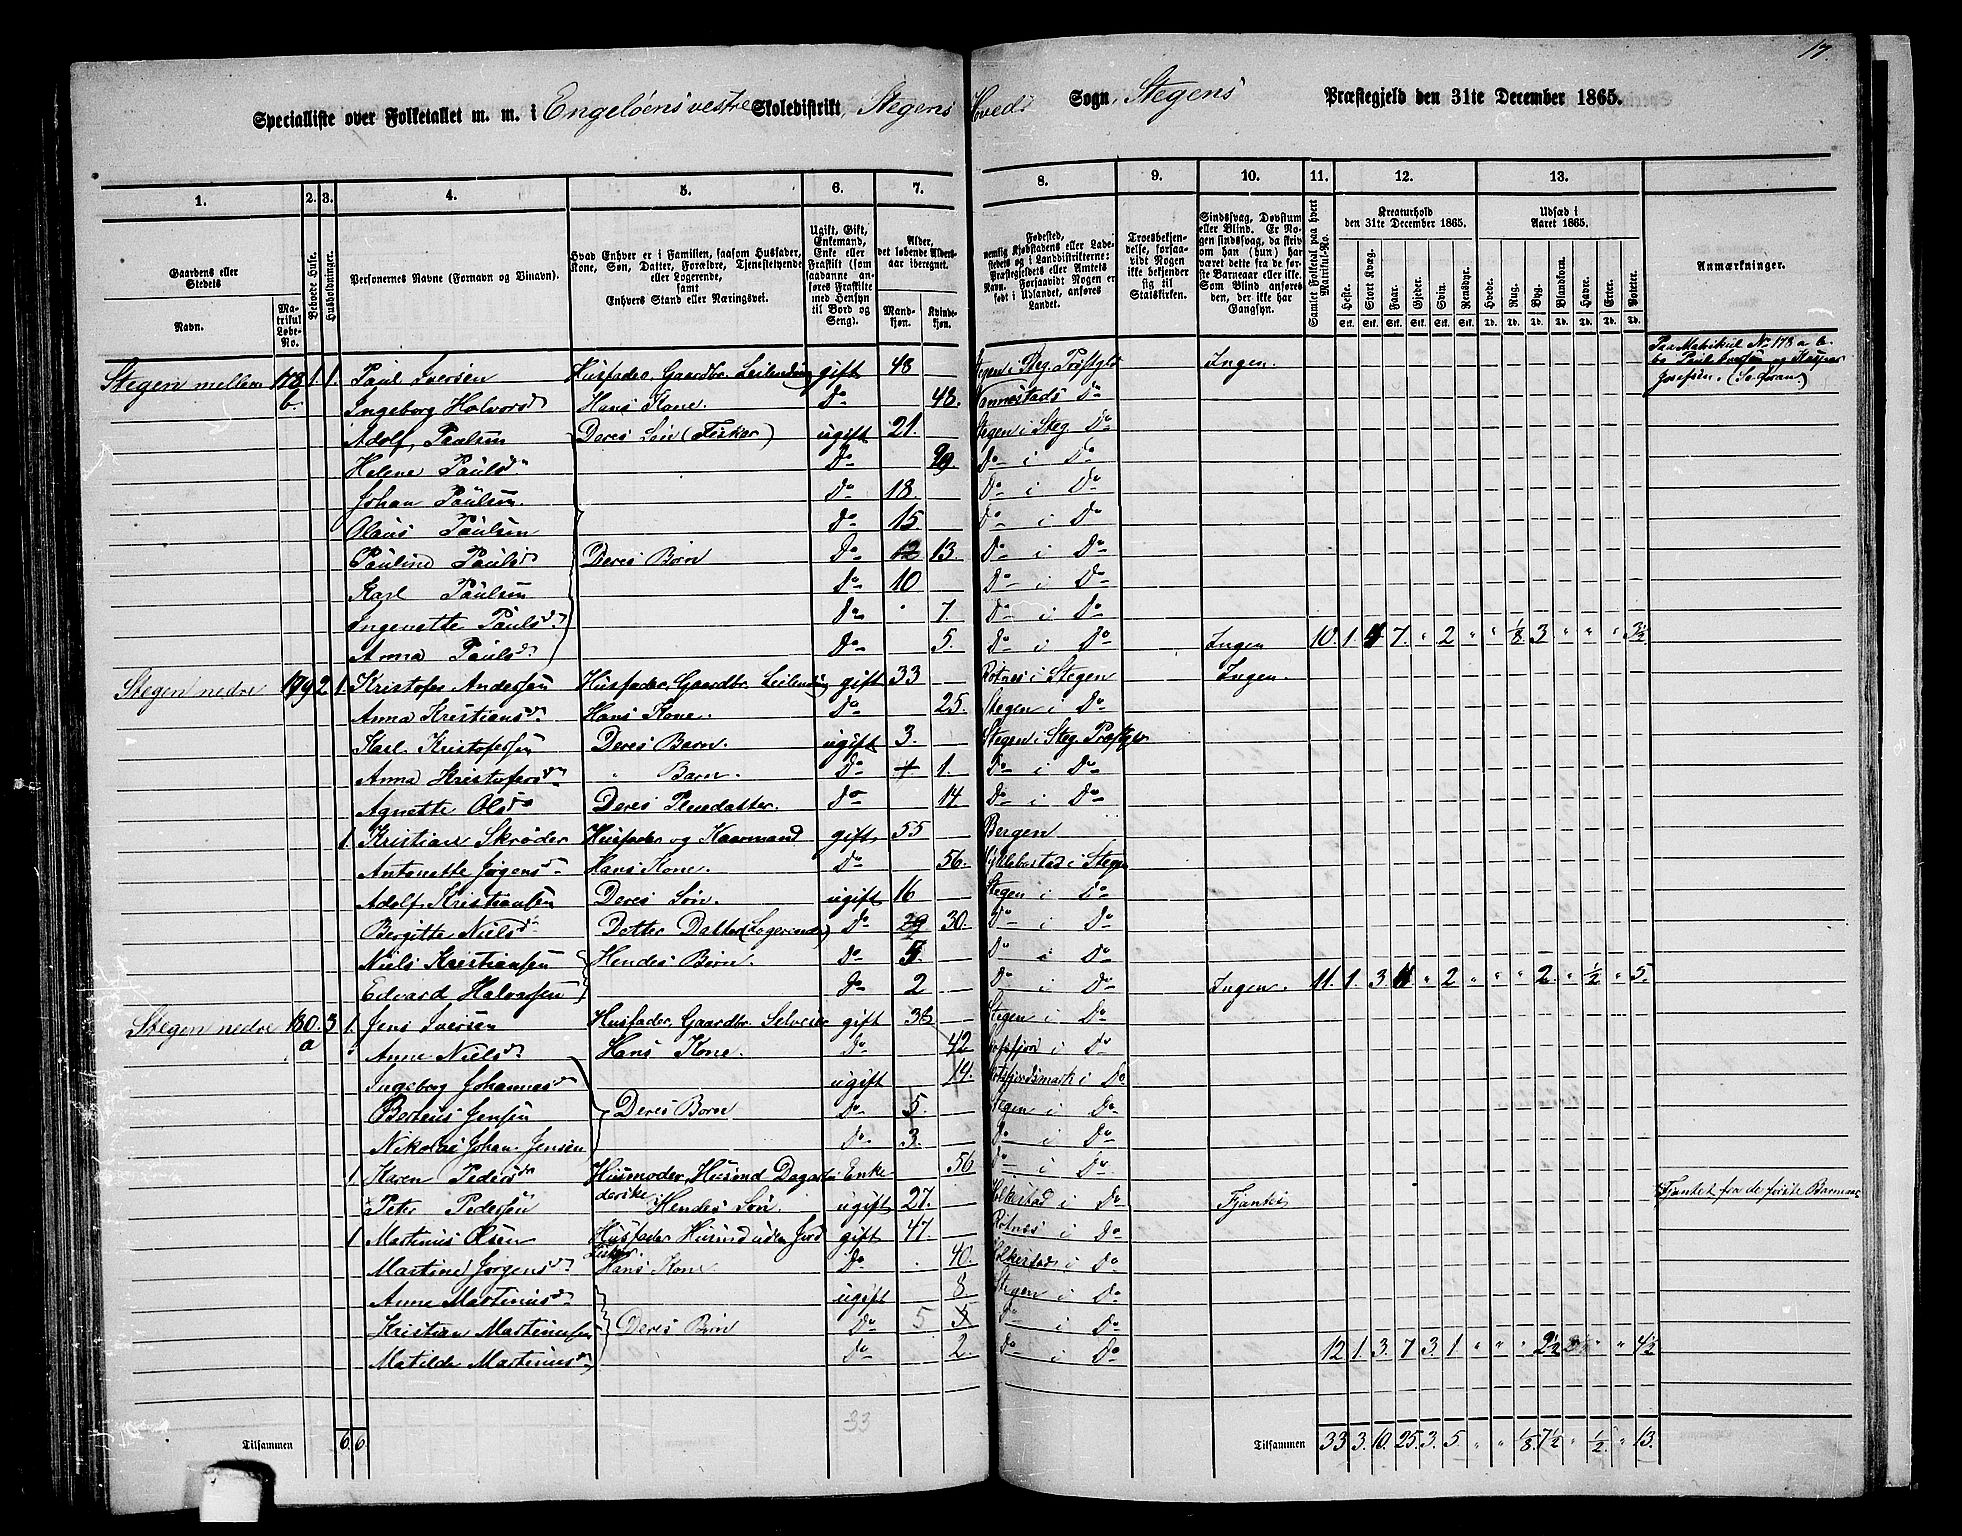 17.
Specialliste over Folketallet m. m. i Engelöens vestre Skoledistrikt, Stegens Hoved Sogn, Stegens Præstegjeld den 31te December 1865.
1. 2. 3. 4. 5. 6. 7. 8. 9. 10. 11. 12. 13.
Gaardens eller Stedets Navn. Matrikul Løbe-No. Bebode Huse. Husholdninger. Personernes Navne (Fornavn og Tilnavn). Hvad Enhver er i Familien, saasom Husfader, Kone, Søn, Datter, Forældre, Tjenestetyende eller Logerende, samt Enhvers Stand eller Næringsvei. Ugift, Gift, Enkemand, Enke eller Fraskilt (som saadanne anføres Fraskilte med Hensyn til Bord og Seng). Alder, det løbende Aldersaar iberegnet. Mandkjøn. Kvindekjøn. Fødested, nemlig Kjøbstadens eller Ladestedets og i Landdistrikterne: Præstegjeldets eller Amtets Navn. Forsaavidt Nogen er født i Udlandet, anføres Landet. Troesbekjendelse, forsaavidt Nogen ikke bekjender sig til Statskirken. Sindssvag, Døvstum eller Blind. Er Nogen sindssvag, da skrives om han (hun) har været dette fra de første Barneaar eller ikke. Som Blind anføres den, der ikke har Gangsyn. Samlet Folketal paa hvert Matrikul-No. Kreaturhold den 31te December 1865. Heste. Stort Kvæg. Faar. Gjeder. Svin. Rensdyr. Udsæd i Aaret 1865. Hvede. Rug. Byg. Blandkorn. Havre. Erter. Poteter. Anmærkninger.
Stegen mellem 178 b. 1 1. Paul Iversen Husfader, Gaardbr. Leilending gift 48 Stegen i Steg. Præstgld Ingen. Paa Matrikul No 178 a b. bo Paul Iversen og Kasper Josefsen.
Ingeborg Halvorsd Hans Kone. Do 48. Do
Adolf Paulsen Deres Søn (Fisker) ugift 21. Stegen i Steg. Do
Helene Paulsd Do Do i Do
Johan Paulsen. Do 18. Do i Do
Olaus Paulsen Do 15. Do i Do
Pauline Paulsd Deres Børn Do 12 13. Do i Do
Karl Paulsen Do 10 Do i Do
Ingenette Paulsd. Do " 7. Do i Do
Anna Paulsd. Do 5. Do i Do Ingen 10. 1. 4 7. " 2 " " 1/8 3 " " " 3 1/2
Stegen nedre 179 2 1. Kristofer Andersen Husfader, Gaardbr. Leilending gift 33 Rotnes i Stegen Ingen.
Anna Kristiansd. Hans Kone. Do 25. Stegen i Do
Karl Kristofersen Deres Barn. ugift 3. Stegen i Steg. Præstgld
Anna Kristofersd " Barn. Do 1 1. Do i Do
Agnette Olsd Deres Pleiedatter. Do 14 Do i Do
1. Kristian Skrøder Husfader og Kaarmand gift 55 Bergen
Antonette Jørgensd Hans Kone. Do 56. i Stegen
Adolf Kristiansen Deres Søn. ugift 16 Stegen i Do
Bergitte Nielsd Datter Datter (Logerende) Do 29 30. Do i Do
Niels Kristiansen Hendes Børn. Do Do i Do
Edvard Halvorsen Do 2 Do i Do Ingen. 11. 1. 3. 11 " 2 " " " 2. " 1/2 " 5.
Stegen nedre 180. a 3 1. Jens Iversen Husfader, Gaardbr. Selveier gift 36 Stegen i Do
Anne Nielsd Hans Kone. Do 42 i Do
Ingeborg Johannesd ugift 14. i Do
Berteus Jensen Deres Børn Do 5. Stegen i Do
Nikolai Johan Jensen Do 3. Do i Do
1 Karen Pedersd Husmoder, Huusmd Dagarbeiderske Enke 56 Do i Do
Peter Pedersen Hendes Søn. ugift 27. Holkestad i Do Fjantet Fjantet fra de første Barneaar
1 Martinus Olsen Husfader Husmd uden Jord Fisker. gift 47 Rotnes i Do
Martine Jørgensd Hans Kone. Do 40. Holkestad i Do
Anne Martinusd ugift 8 Stegen i Do
Kristian Martinussen Deres Børn Do 5 5 Do i Do
Matilde Martinusd Do 2. Do i Do 12 1. 3. 7 3. 1 " " " 2 1/2 " " 4 1/2
33
Tilsammen 6. 6. Tilsammen 33 3. 10. 25. 3. 5. " " 1/8 7 1/2 " 1/2 " 13.